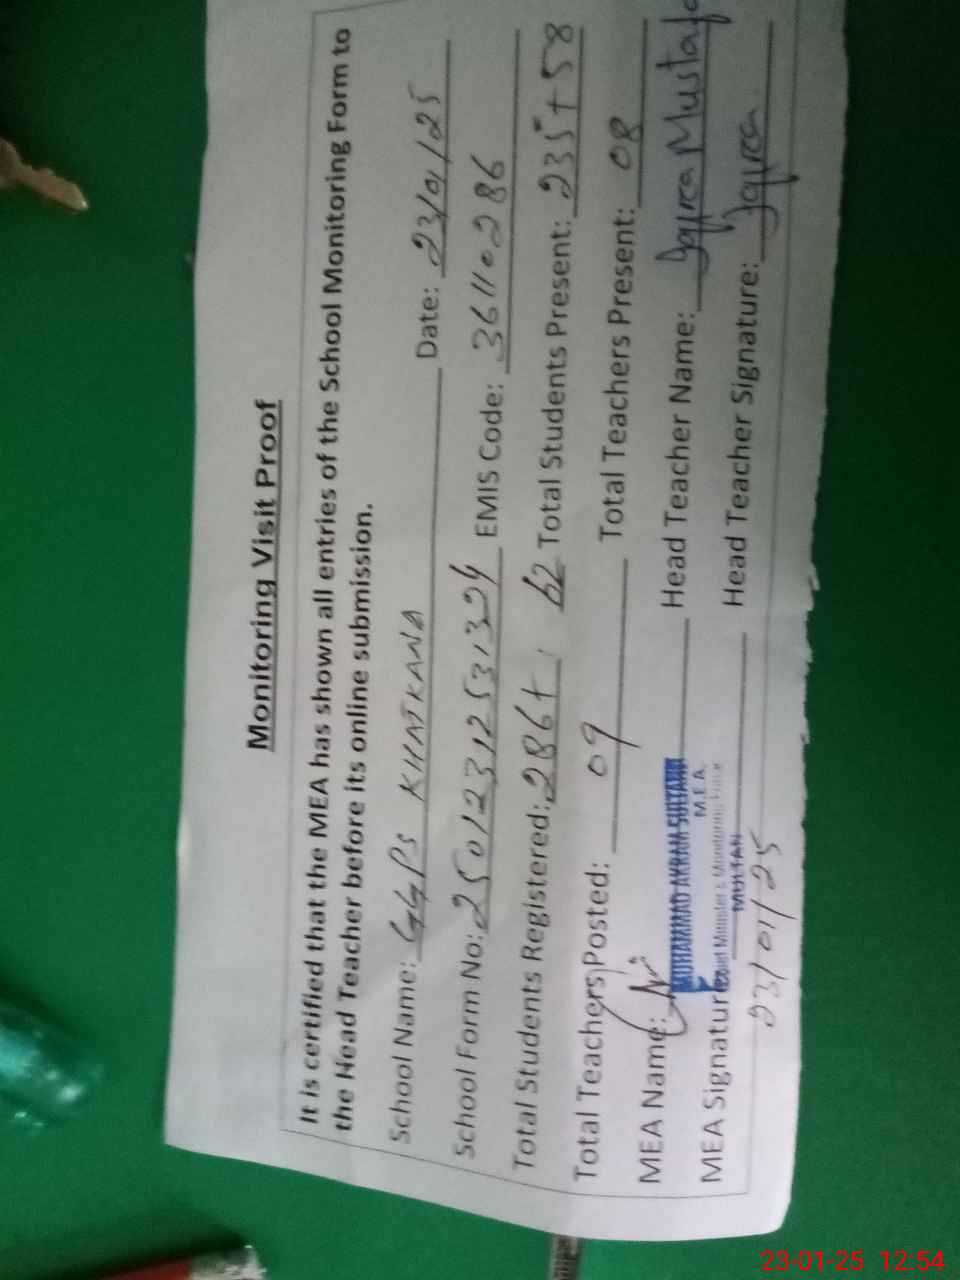 Monitoring Visit Proof
It is certified that the MEA has shown all entries of the School Monitoring Form to
the Head Teacher before its online submission.
School Name: GGPS KHATKANA Date: 23/01/25
School Form No: 25012312531324 EMIS Code: 36110286
Total Students Registered: 286+ 62 Total Students Present: 235+58
Total Teachers Posted: 09 Total Teachers Present: 08
MEA Name: MUHAMMAD AKRAM SULTANI Head Teacher Name: Mustafa
M.E.A.
MEA Signature: Chief Minister's Monitoring Force Head Teacher Signature:
MULTAN
23/01/25
23-01-25 12:54